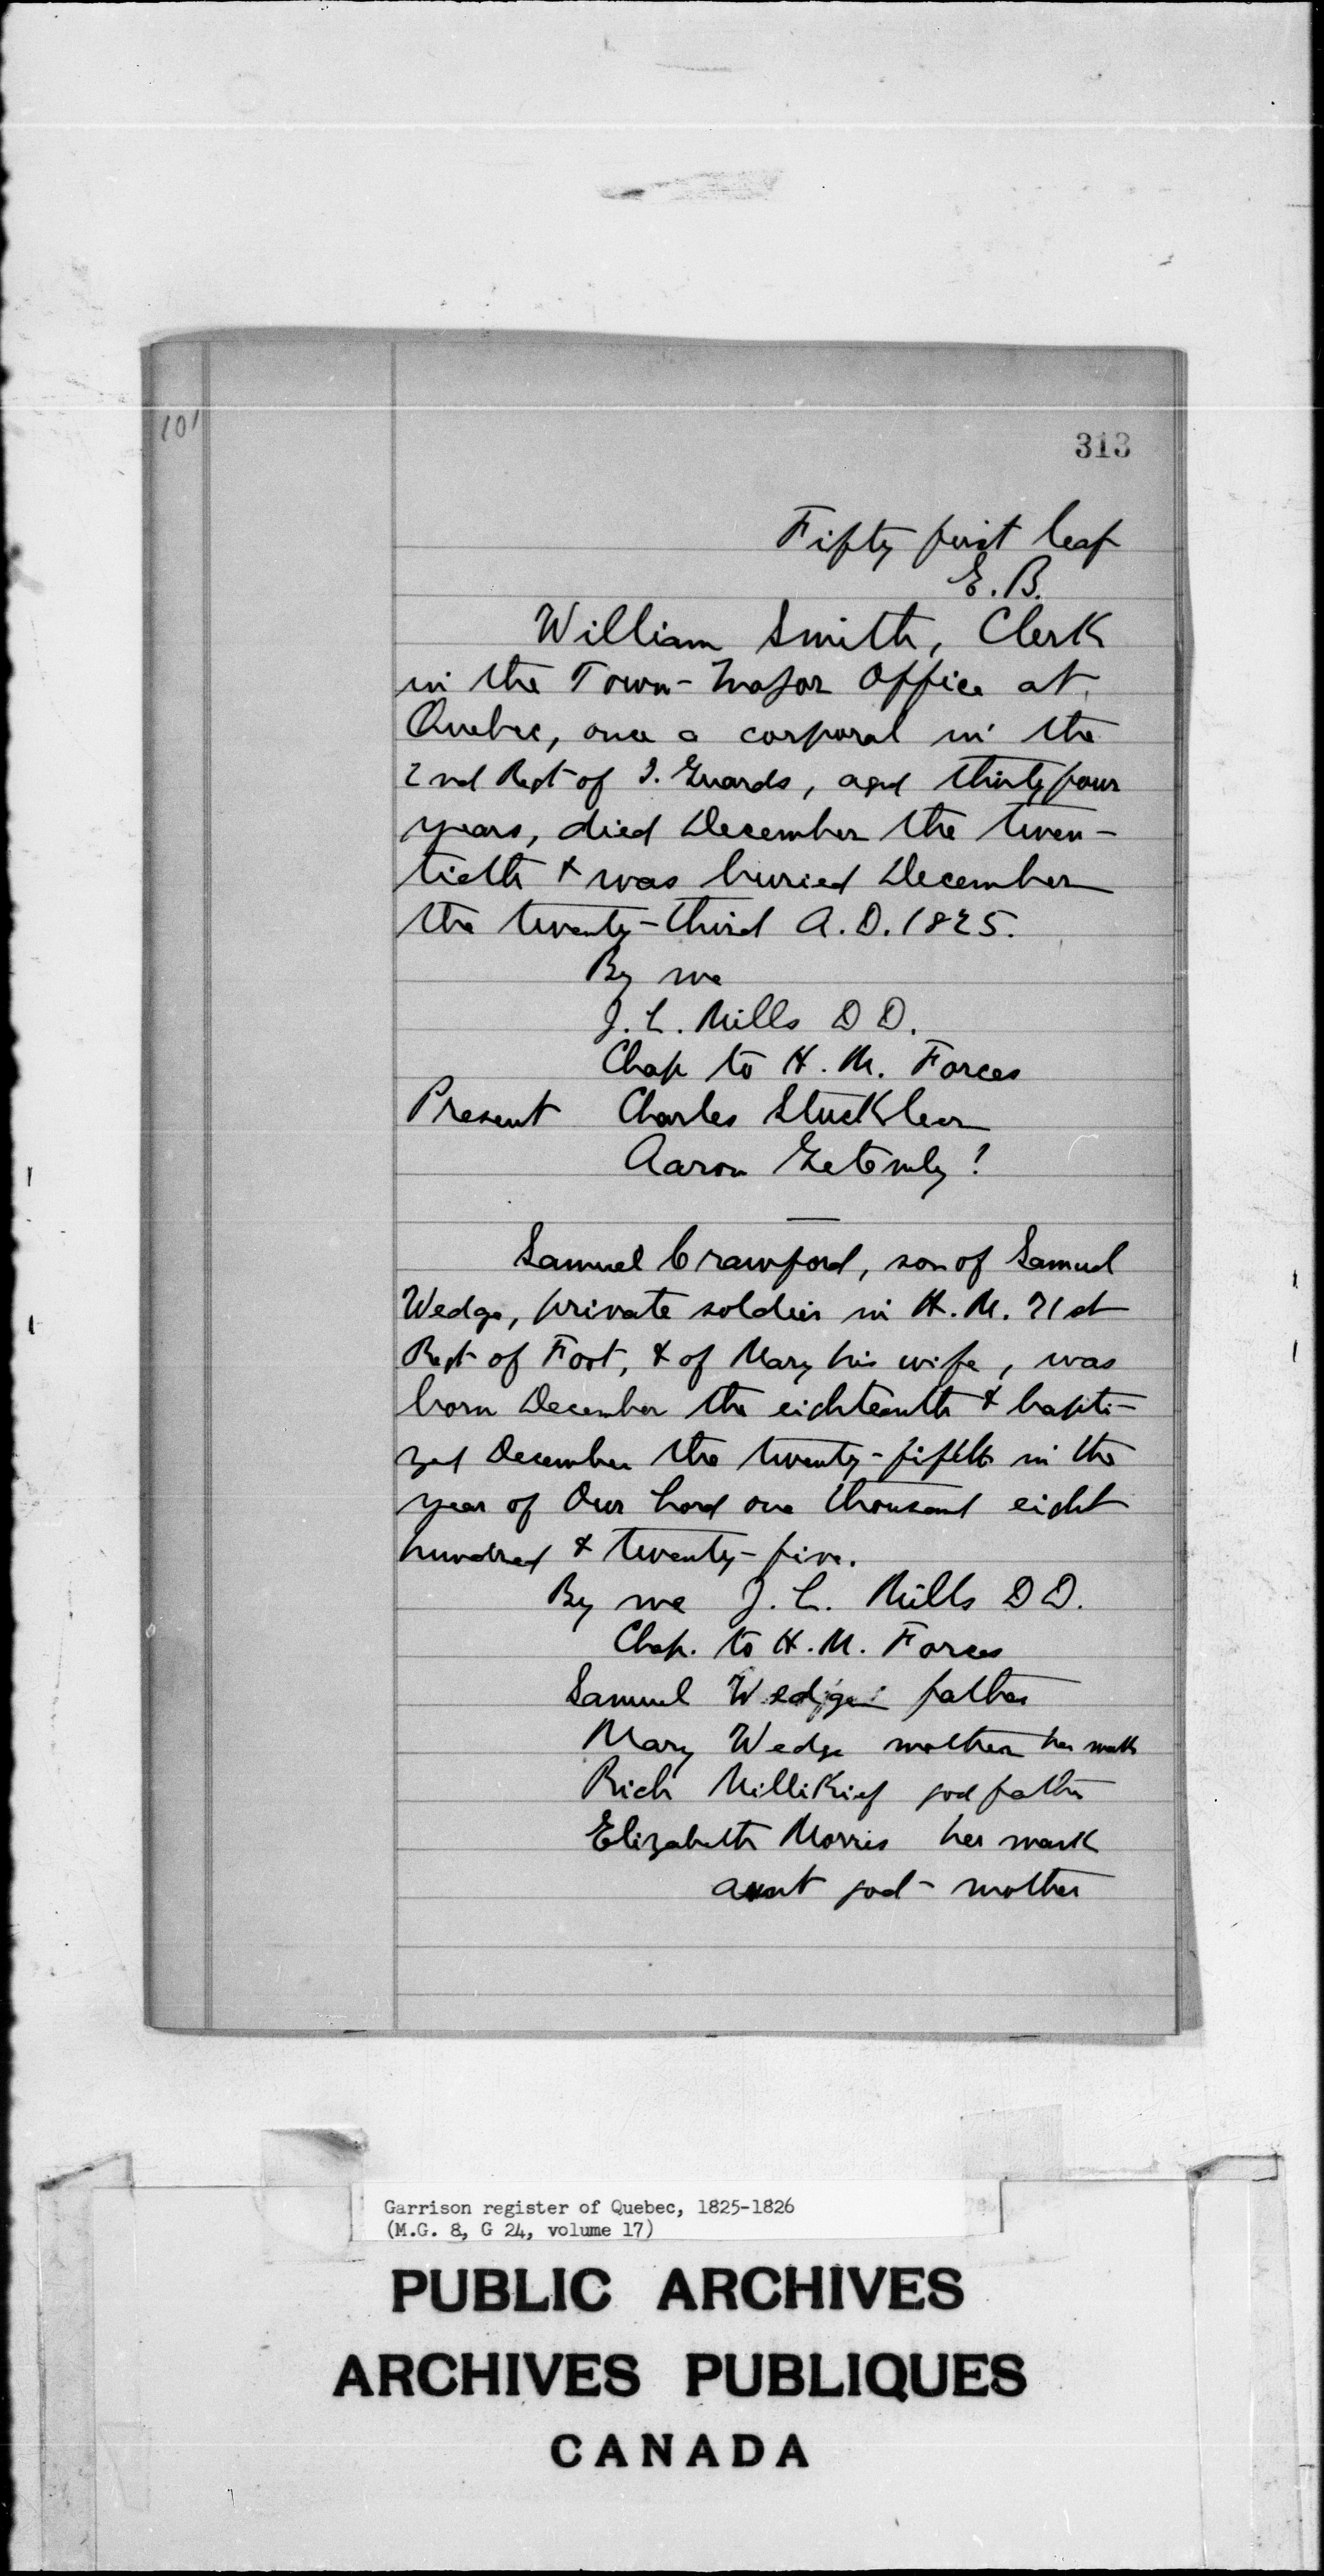 101
313
Fifty first leaf
E. B.
William Smith, Clerk
in the Town-Major Office at
Quebec, once a corporal in the
2nd Regt of I. Guards, aged thirty four
years, died December the twen-
tieth & was buried December
the twenty-third A.D. 1825.
By me
J. L. Mills D D.
Chap to H. M. Forces
Present Charles
Aaron
Samuel Crawford, son of Samuel
Wedge, private soldier in H. M. 71st
Regt of Foot, & of Mary his wife, was
born December the eighteenth & bapti-
zed December the twenty-fifth in the
year of Our Lord one thousand eight
hundred & twenty-five.
By me J. L. Mills D D.
Chap. to H. M. Forces
Samuel Wedge father
Mary Wedge mother her mark
Rich god father
Elizabeth Morris her mark
aunt god-mother
Garrison register of Quebec, 1825-1826
(M.G. 8, G 24, volume 17)
PUBLIC ARCHIVES
ARCHIVES PUBLIQUES
CANADA